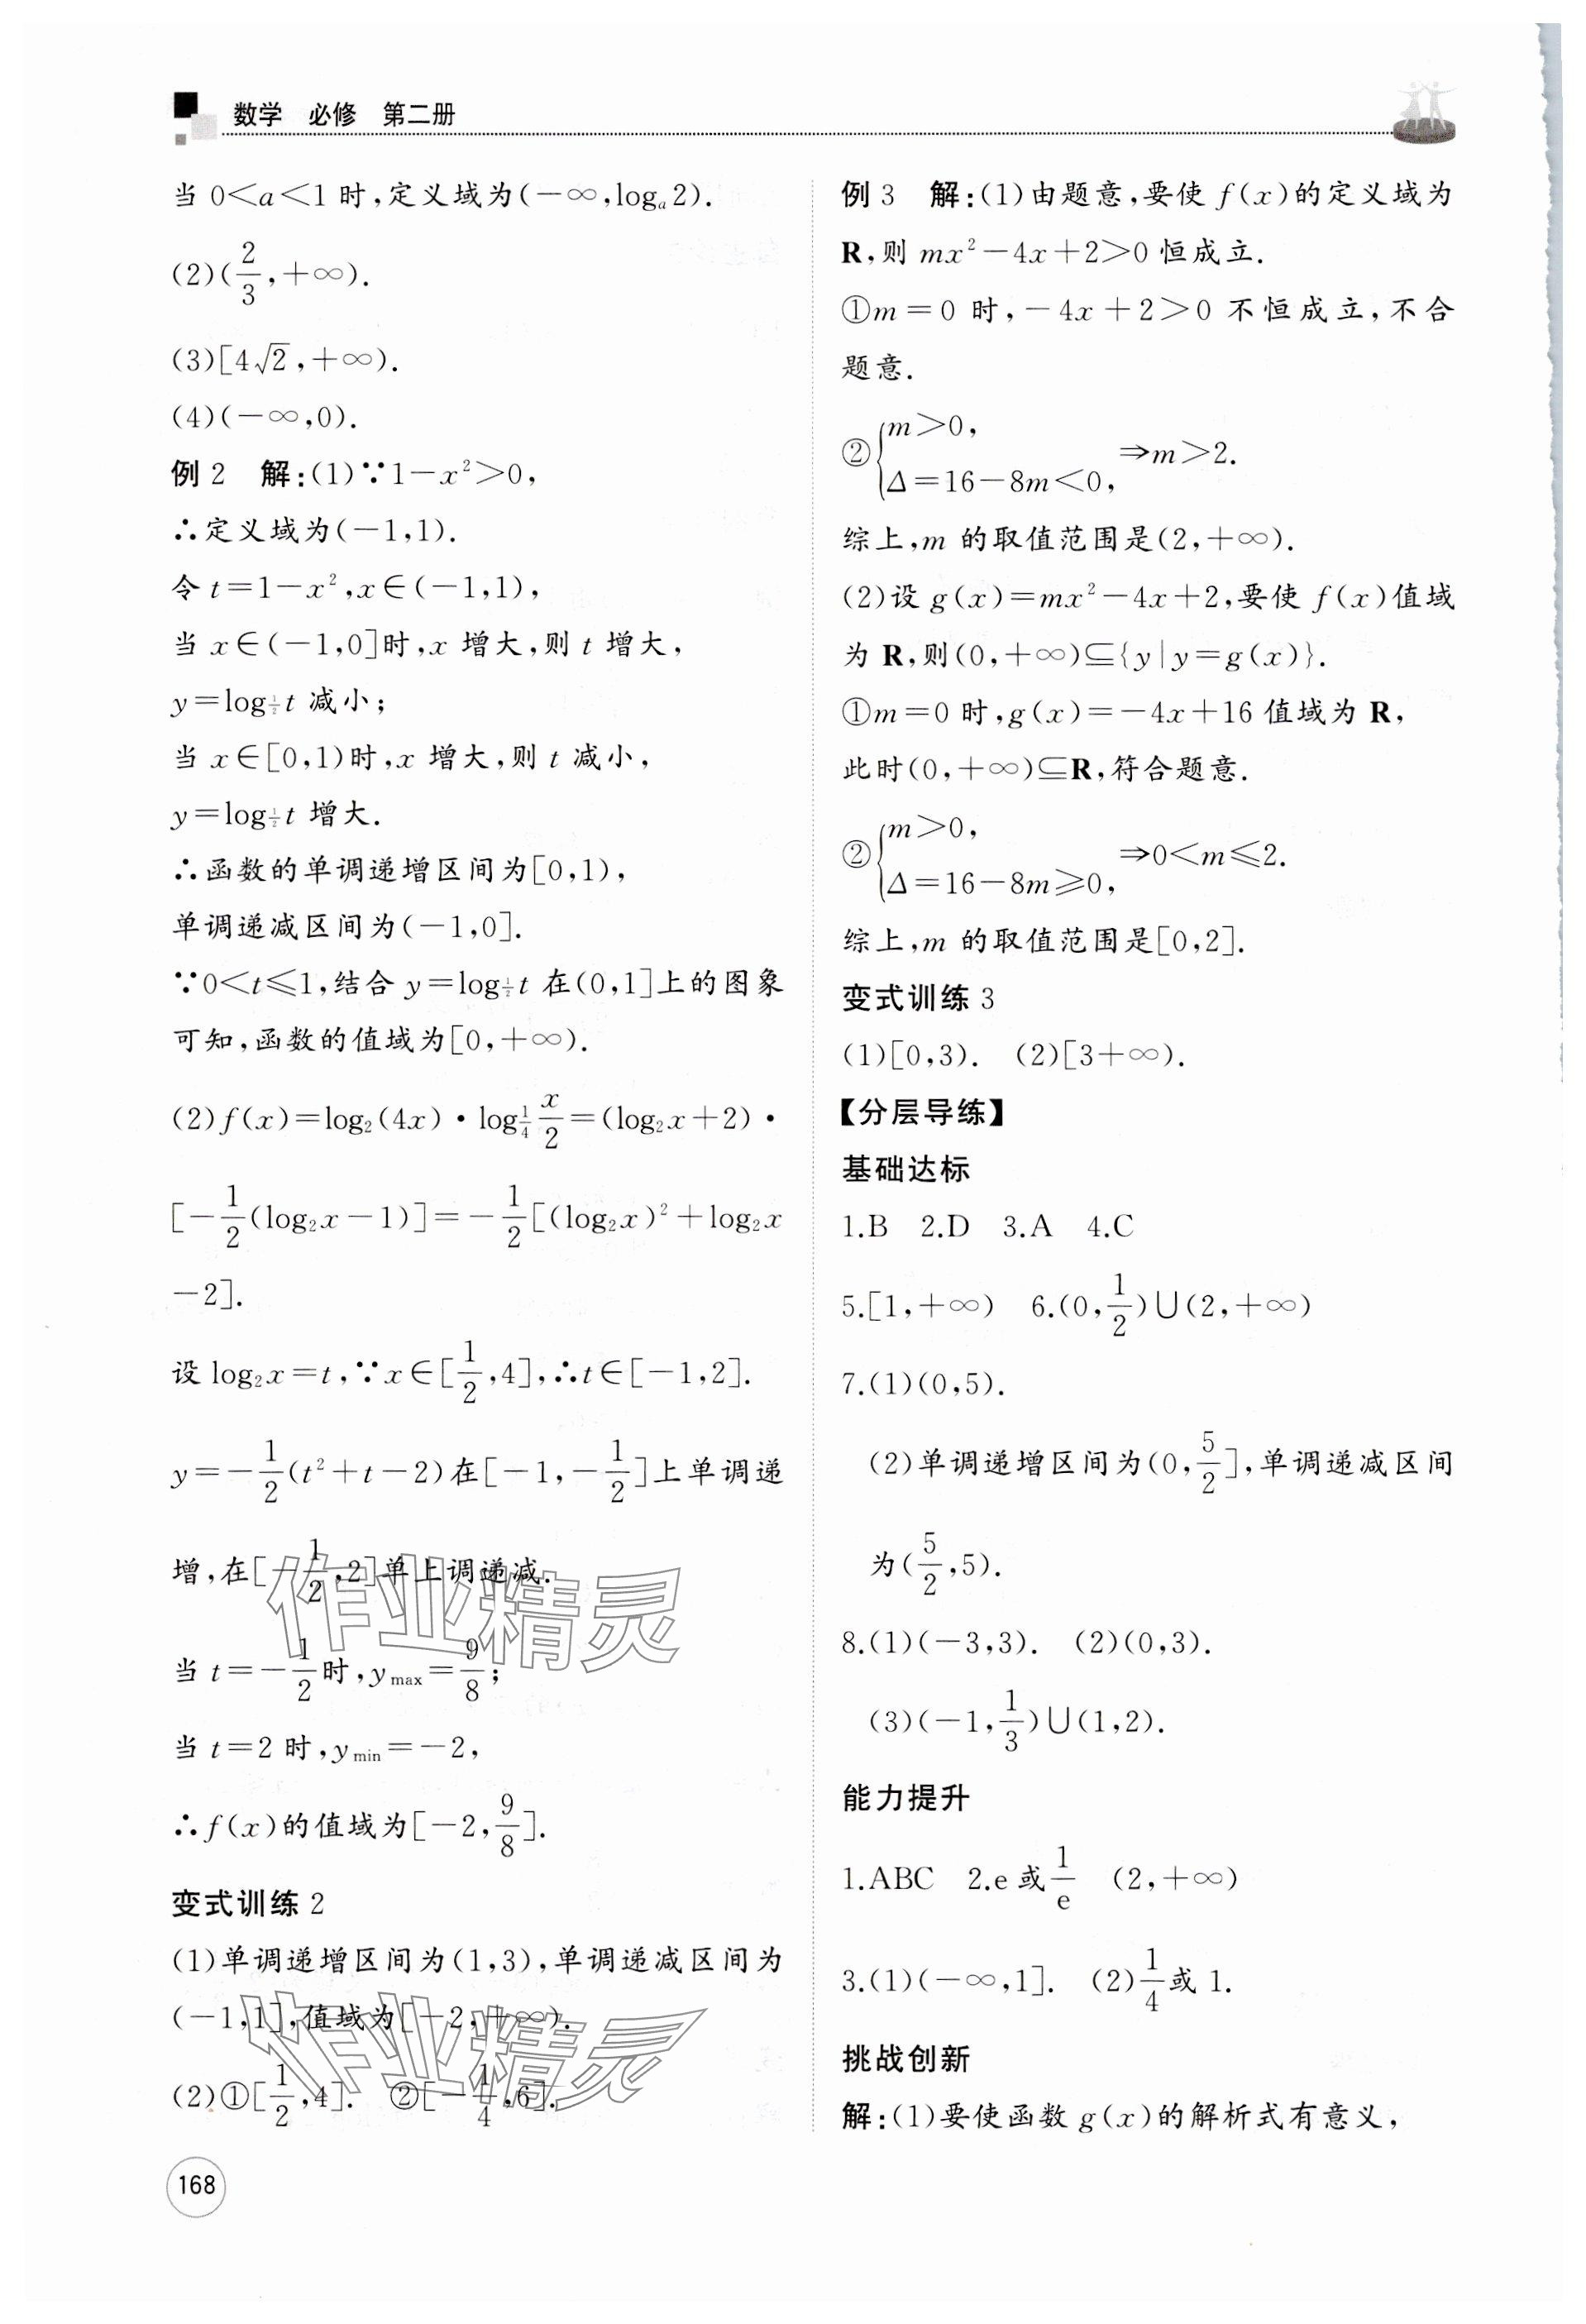 数学 必修 第二册
当 0<a<1 时,定义域为(-∞,logₐ2).
(2)(2/3,+∞).
(3)[4√2,+∞).
(4)(-∞,0).
例 2 解:(1)∵1-x²>0,
∴定义域为(-1,1).
令 t=1-x²,x∈(-1,1),
当 x∈(-1,0]时,x 增大,则 t 增大,
y=log_{1/2}t 减小;
当 x∈[0,1)时,x 增大,则 t 减小,
y=log_{1/2}t 增大.
∴函数的单调递增区间为[0,1),
单调递减区间为(-1,0].
∵0<t≤1,结合 y=log_{1/2}t 在(0,1]上的图象
可知,函数的值域为[0,+∞).
(2)f(x)=log₂(4x)·log_{1/4}x/2=(log₂x+2)·
[-1/2(log₂x-1)]=-1/2[(log₂x)²+log₂x
-2].
设 log₂x=t,∵x∈[1/2,4],∴t∈[-1,2].
y=-1/2(t²+t-2)在[-1,-1/2]上单调递
增,在[-1/2,2]单上调递减.
当 t=-1/2时,y_max=9/8;
当 t=2 时,y_min=-2,
∴f(x)的值域为[-2,9/8].
变式训练 2
(1)单调递增区间为(1,3),单调递减区间为
(-1,1],值域为[-2,+∞).
(2)①[1/2,4]. ②[-1/4,6].
168
例 3 解:(1)由题意,要使 f(x)的定义域为
R,则 mx²-4x+2>0 恒成立.
①m=0 时,-4x+2>0 不恒成立,不合
题意.
②{m>0,
Δ=16-8m<0, ⇒m>2.
综上,m 的取值范围是(2,+∞).
(2)设 g(x)=mx²-4x+2,要使 f(x)值域
为 R,则(0,+∞)⊆{y|y=g(x)}.
①m=0 时,g(x)=-4x+16 值域为 R,
此时(0,+∞)⊆R,符合题意.
②{m>0,
Δ=16-8m≥0, ⇒0<m≤2.
综上,m 的取值范围是[0,2].
变式训练 3
(1)[0,3). (2)[3+∞).
【分层导练】
基础达标
1.B 2.D 3.A 4.C
5.[1,+∞) 6.(0,1/2)∪(2,+∞)
7.(1)(0,5).
(2)单调递增区间为(0,5/2],单调递减区间
为(5/2,5).
8.(1)(-3,3). (2)(0,3).
(3)(-1,1/3)∪(1,2).
能力提升
1.ABC 2.e 或1/e (2,+∞)
3.(1)(-∞,1]. (2)1/4或 1.
挑战创新
解:(1)要使函数 g(x)的解析式有意义,
作业精灵
作业精灵